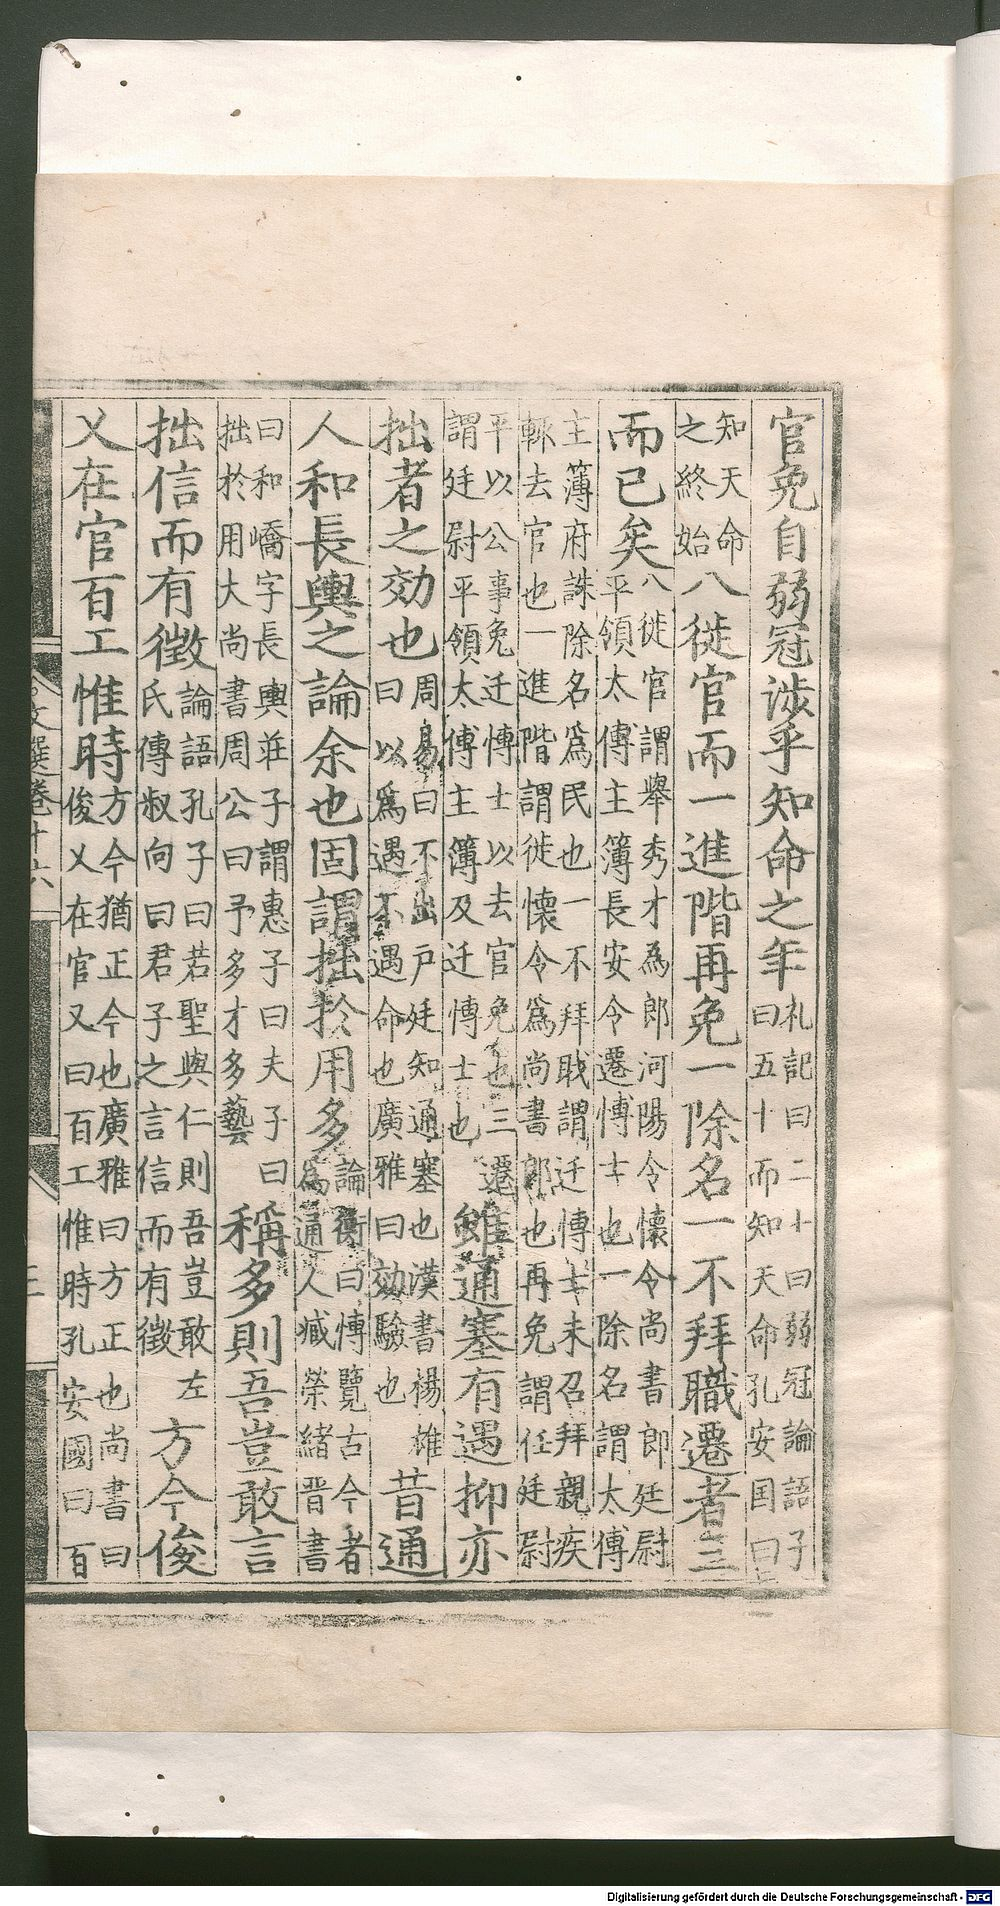 官免自弱冠涉乎知命之年礼記曰二十曰弱冠論語子曰五十而知天命孔安国曰
知天命之終始八徙官而一進階再免一除名一不拜職遷者三
而已矣八徙官謂舉秀才為郎河陽令懷令尚書郎廷尉平領太傅主簿長安令遷博士也一除名謂太傅
主簿府誅除名爲民也一不拜職謂迁博士未召拜親疾輙去官也一進階謂徙懷令爲尚書郎也再免謂任廷尉
平以公事免迁博士以去官免也三遷謂廷尉平領太傅主簿及迁博士也雖通塞有遇抑亦
拙者之効也周易曰不出戶廷知通塞也漢書楊雄曰以爲遇不遇命也廣雅曰効驗也昔通
人和長輿之論余也固謂拙於用多論衡曰博覽古今者為通人臧榮緒晋書
曰和嶠字長輿莊子謂惠子曰夫子曰拙於用大尚書周公曰予多才多藝稱多則吾豈敢言
拙信而有徵論語孔子曰若聖與仁則吾豈敢左氏傳叔向曰君子之言信而有徵方今俊
乂在官百工惟時方今猶正今也廣雅曰方正也尚書曰俊乂在官又曰百工惟時孔安國曰百
文選卷十六
Digitalisierung gefördert durch die Deutsche Forschungsgemeinschaft - DFG